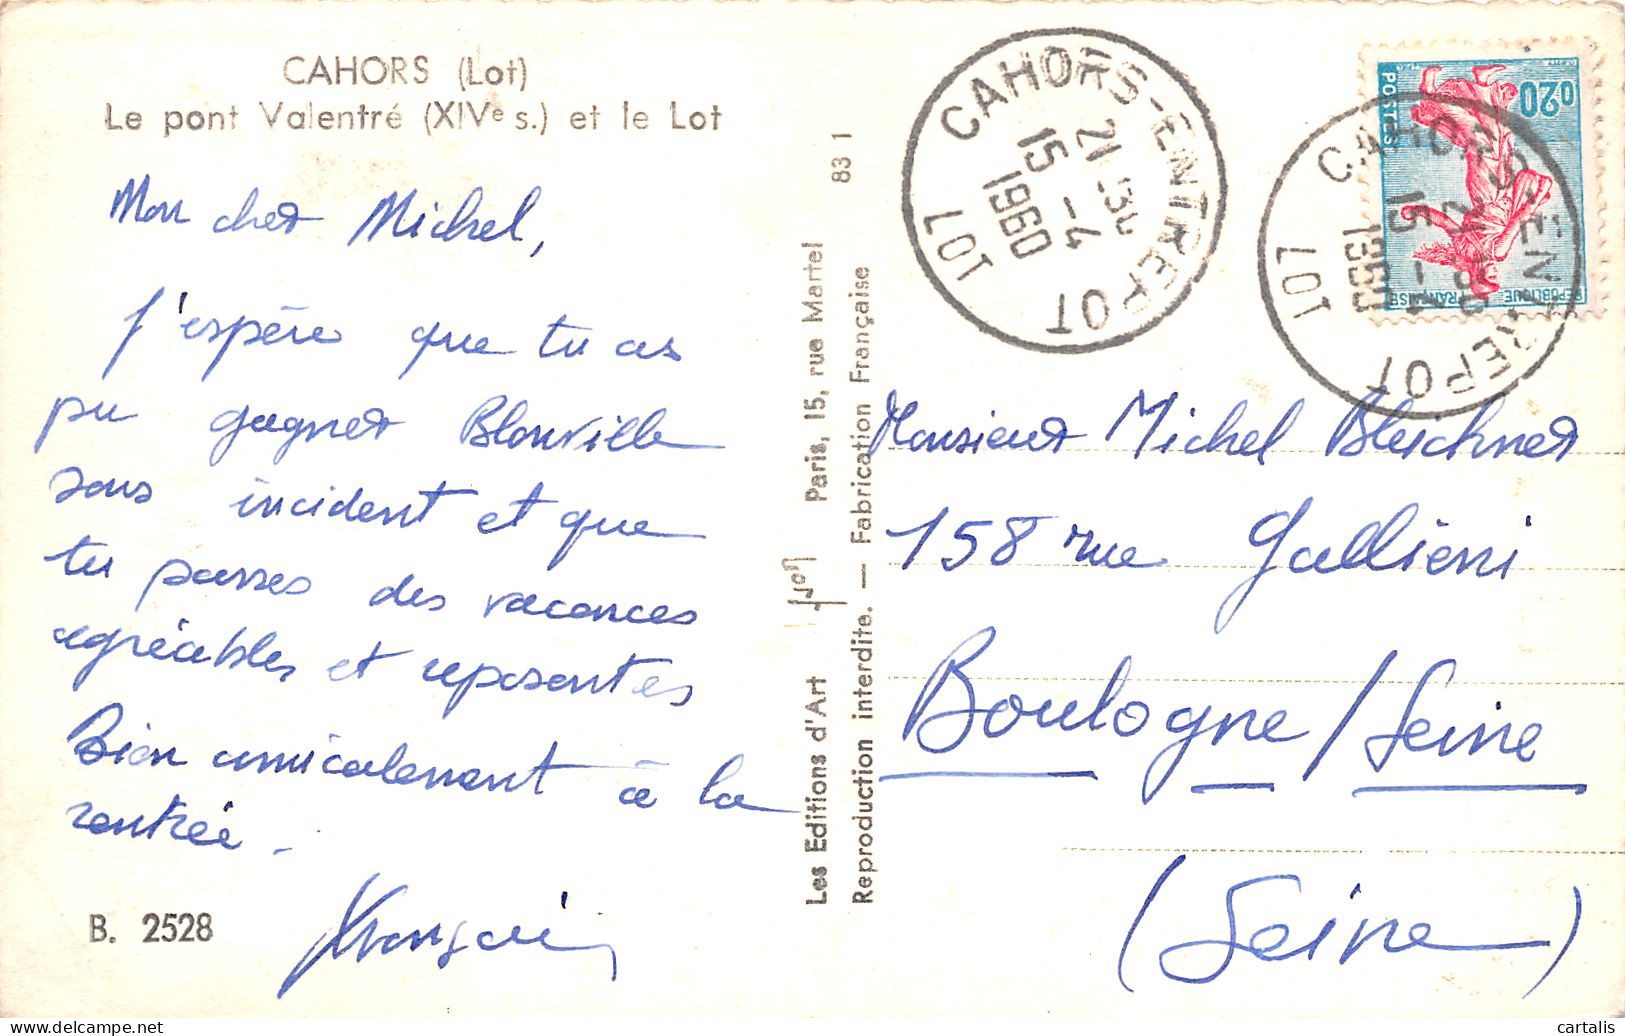 CAHORS (Lot)
Le pont Valentré (XIVe s.) et le Lot
Mon cher Michel,
J'espère que tu as
pu gagner Blonville
sans incident et que
tu passes des vacances
agréables et reposantes
Bien amicalement à la
rentrée.
François
B. 2528
Les Editions d'Art Yvon Paris, 15, rue Martel 83 1
Reproduction interdite. — Fabrication Française
CAHORS-ENTREPOT
21H30
15 -4
1960
LOT
CAHORS-ENTREPOT
21H30
15 -4
1960
LOT
0,20
POSTES
REPUBLIQUE FRANÇAISE
Monsieur Michel Bleichner
158 rue Galliéni
Boulogne/Seine
(Seine)
http://www.delcampe.net
cartalis